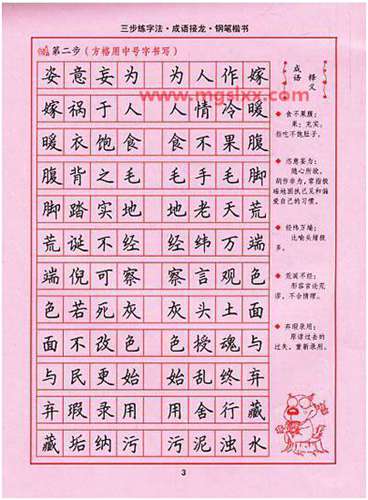 三步练字法·成语接龙·钢笔楷书
第二步(方格用中号字书写)
姿意妄为 为人作嫁
嫁祸于人 人情冷暖
暖衣饱食 食不果腹
腹背之毛 毛手毛脚
脚踏实地 地老天荒
荒诞不经 经纬万端
端倪可察 察言观色
色若死灰 灰头土面
面不改色 色授魂与
与民更始 始乱终弃
弃瑕录用 用舍行藏
藏垢纳污 污泥浊水
www.mgslxx.com
成语释义
食不果腹:
果:充实。
指吃不饱肚子。
恣意妄为:
随心所欲,
胡作非为,常指教
条地固执己见和偏
爱自己的习惯。
经纬万端:
比喻头绪很
多。
荒诞不经:
形容言论荒
谬,不合情理。
弃瑕录用:
原谅过去的
过失,重新录用。
3